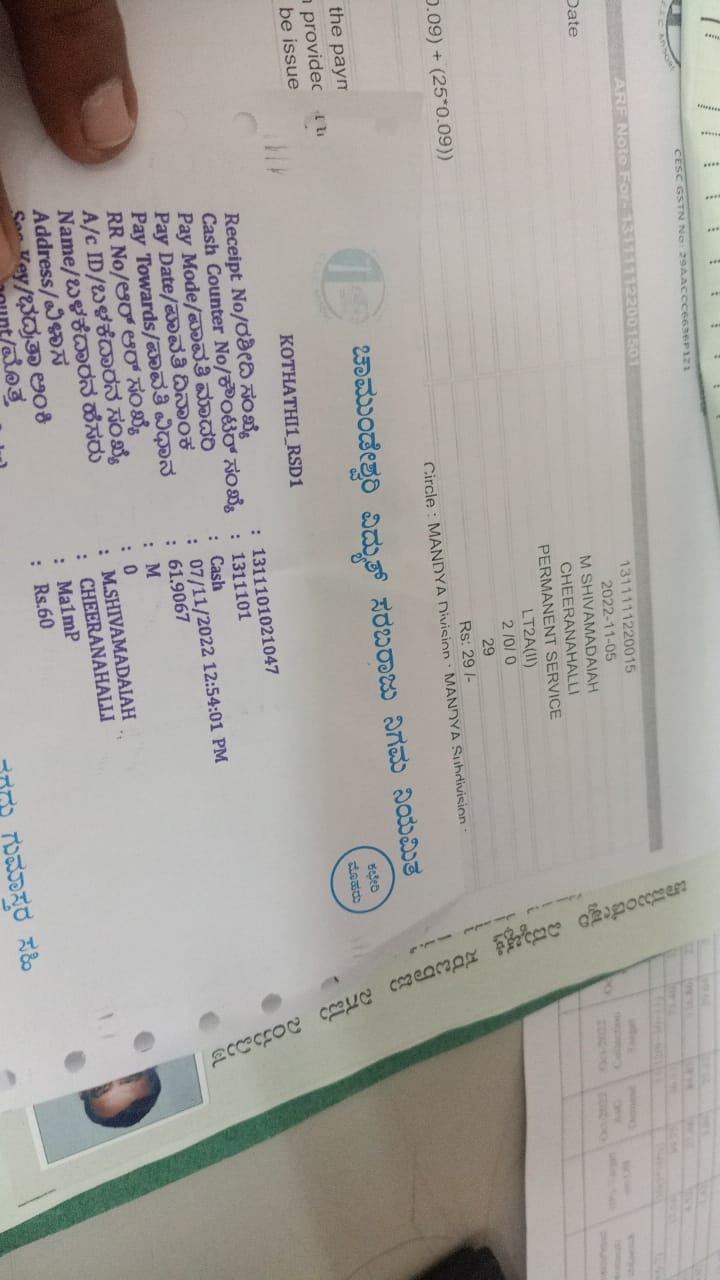 CESC GSTN No: 29AACCC6636P1Z1
ARF Note For- 131111122001501
1311111220015
2022-11-05
M SHIVAMADAIAH
CHEERANAHALLI
PERMANENT SERVICE
LT2A(II)
2 /0/ 0
29
Rs: 29 /-
Date
0.09) + (25*0.09))
Circle : MANDYA Division : MANDYA Subdivision :
the paym
provided
be issue
ಚಾಮುಂಡೇಶ್ವರಿ ವಿದ್ಯುತ್ ಸರಬರಾಜು ನಿಗಮ ನಿಯಮಿತ
ಕಛೇರಿ
ಮೊಹರು
KOTHATHI1_RSD1
Receipt No/ರಶೀದಿ ಸಂಖ್ಯೆ : 1311101021047
Cash Counter No/ಕೌಂಟರ್ ಸಂಖ್ಯೆ : 1311101
Pay Mode/ಪಾವತಿ ಮಾದರಿ : Cash
Pay Date/ಪಾವತಿ ದಿನಾಂಕ : 07/11/2022 12:54:01 PM
Pay Towards/ಪಾವತಿ ವಿಧಾನ : 61.9067
RR No/ಆರ್ ಆರ್ ಸಂಖ್ಯೆ : M
A/c ID/ಬಳಕೆದಾರನ ಸಂಖ್ಯೆ : 0
Name/ಬಳಕೆದಾರನ ಹೆಸರು : M.SHIVAMADAIAH
Address/ವಿಳಾಸ : CHEERANAHALLI
Key/ಭದ್ರತಾ ಅಂಕಿ : Ma1mP
ount/ಮೊತ್ತ : Rs.60
ಗುಮಾಸ್ತರ ಸಹಿ